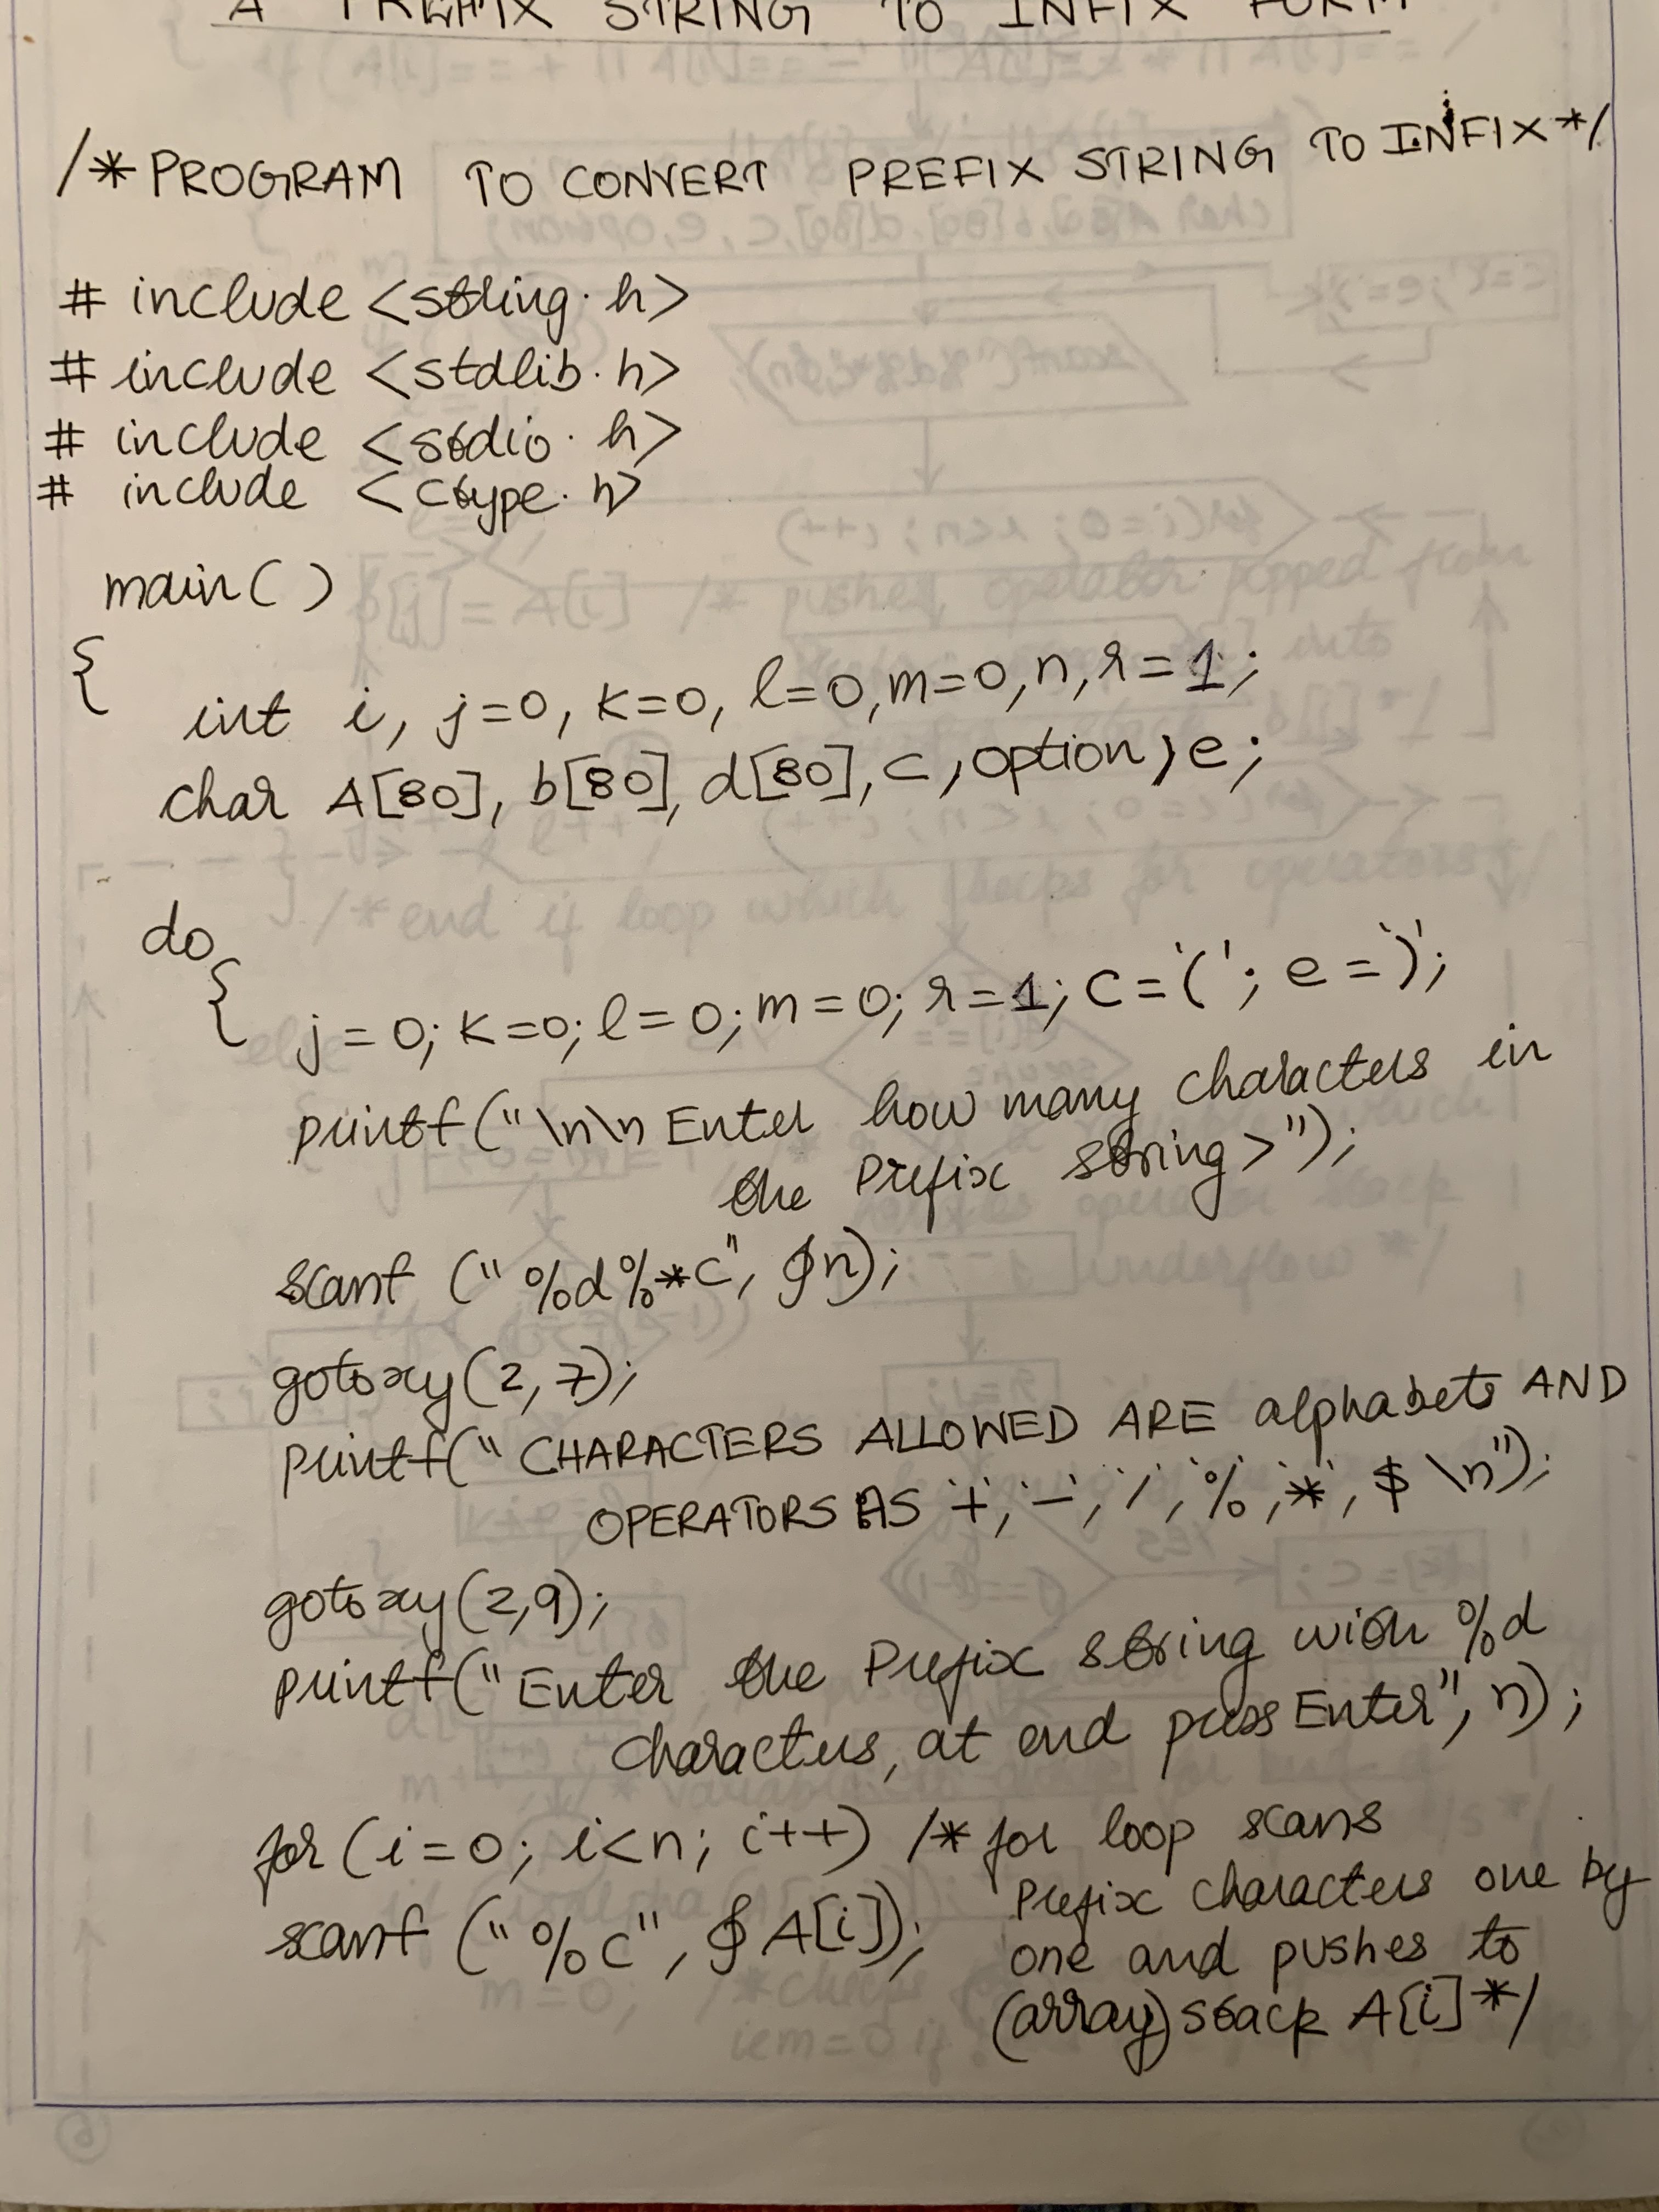 A PREFIX STRING TO INFIX FORM
/* PROGRAM TO CONVERT PREFIX STRING TO INFIX */
# include <string.h>
# include <stdlib.h>
# include <stdio.h>
# include <ctype.h>
main( )
{
int i, j=0, k=0, l=0, m=0, n, r=1;
char A[80], b[80], d[80], c, option, e;
do
{
j=0; k=0; l=0; m=0; r=1; c='('; e=')';
printf("\n\n Enter how many characters in
the Prefix string>");
scanf ("%d%*c", &n);
gotoxy(2,7);
printf(" CHARACTERS ALLOWED ARE alphabets AND
OPERATORS AS '+', '-', '/', '%', '*', $ \n");
gotoxy(2,9);
printf("Enter the Prefix string with %d
characters, at end press Enter", n);
for (i=0; i<n; i++) /* for loop scans
Prefix characters one by
scanf ("%c", & A[i]);
one and pushes to
(array) stack A[i] */